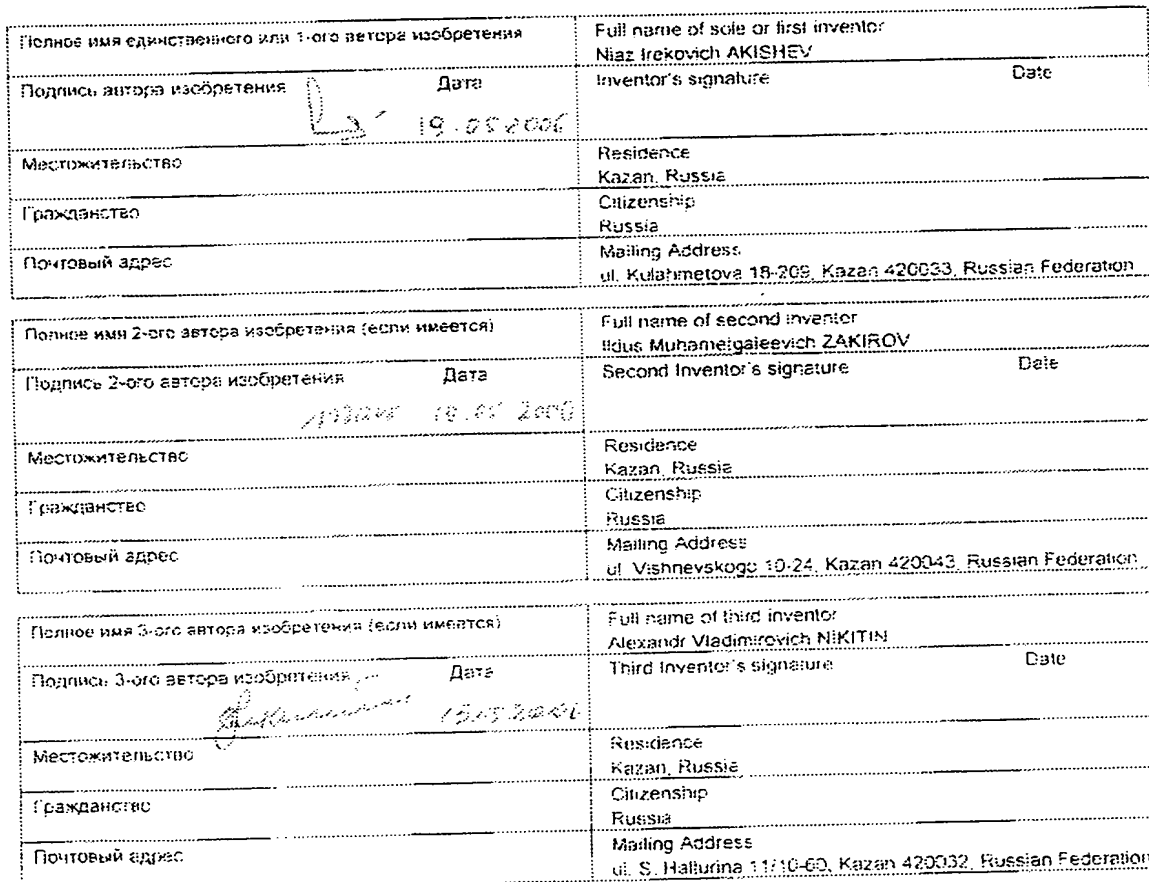 Полное имя единственного или 1-ого автора изобретения
Full name of sole or first inventor
Niaz Irekovich AKISHEV
Подпись автора изобретения Дата
19.05.2006
Inventor's signature Date
Местожительство
Residence
Kazan, Russia
Гражданство
Citizenship
Russia
Почтовый адрес
Mailing Address
ul. Kulahmetova 18-209, Kazan 420033, Russian Federation
Полное имя 2-ого автора изобретения (если имеется)
Full name of second inventor
Ildus Muhametgaleevich ZAKIROV
Подпись 2-ого автора изобретения Дата
Second Inventor's signature Date
Местожительство
Residence
Kazan, Russia
Гражданство
Citizenship
Russia
Почтовый адрес
Mailing Address
ul. Vishnevskogo 10-24, Kazan 420043, Russian Federation
Полное имя 3-ого автора изобретения (если имеется)
Full name of third inventor
Alexandr Vladimirovich NIKITIN
Подпись 3-ого автора изобретения Дата
Third Inventor's signature Date
Местожительство
Residence
Kazan, Russia
Гражданство
Citizenship
Russia
Почтовый адрес
Mailing Address
ul. S. Halturina 11/10-60, Kazan 420032, Russian Federation